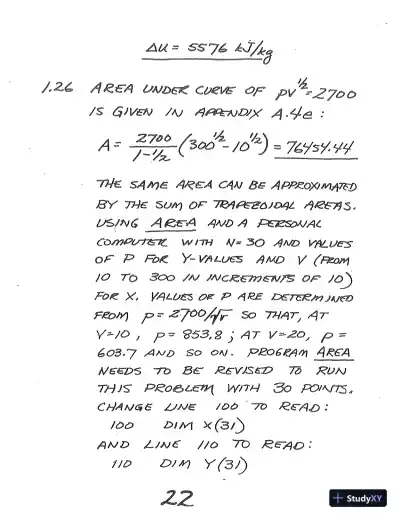 ΔU = 5576 kJ/kg
1.26 AREA UNDER CURVE OF pV^½=2700
IS GIVEN IN APPENDIX A.4e :
A = 2700/1-½ (300^½ - 10^½) = 76454.44
THE SAME AREA CAN BE APPROXIMATED
BY THE SUM OF TRAPEZOIDAL AREAS.
USING AREA AND A PERSONAL
COMPUTER WITH N=30 AND VALUES
OF P FOR Y-VALUES AND V (FROM
10 TO 300 IN INCREMENTS OF 10)
FOR X. VALUES OF P ARE DETERMINED
FROM p = 2700/√V SO THAT, AT
V=10 , p = 853.8 ; AT V=20, p =
603.7 AND SO ON. PROGRAM AREA
NEEDS TO BE REVISED TO RUN
THIS PROBLEM WITH 30 POINTS.
CHANGE LINE 100 TO READ :
100 DIM X(31)
AND LINE 110 TO READ :
110 DIM Y(31)
22
StudyXY